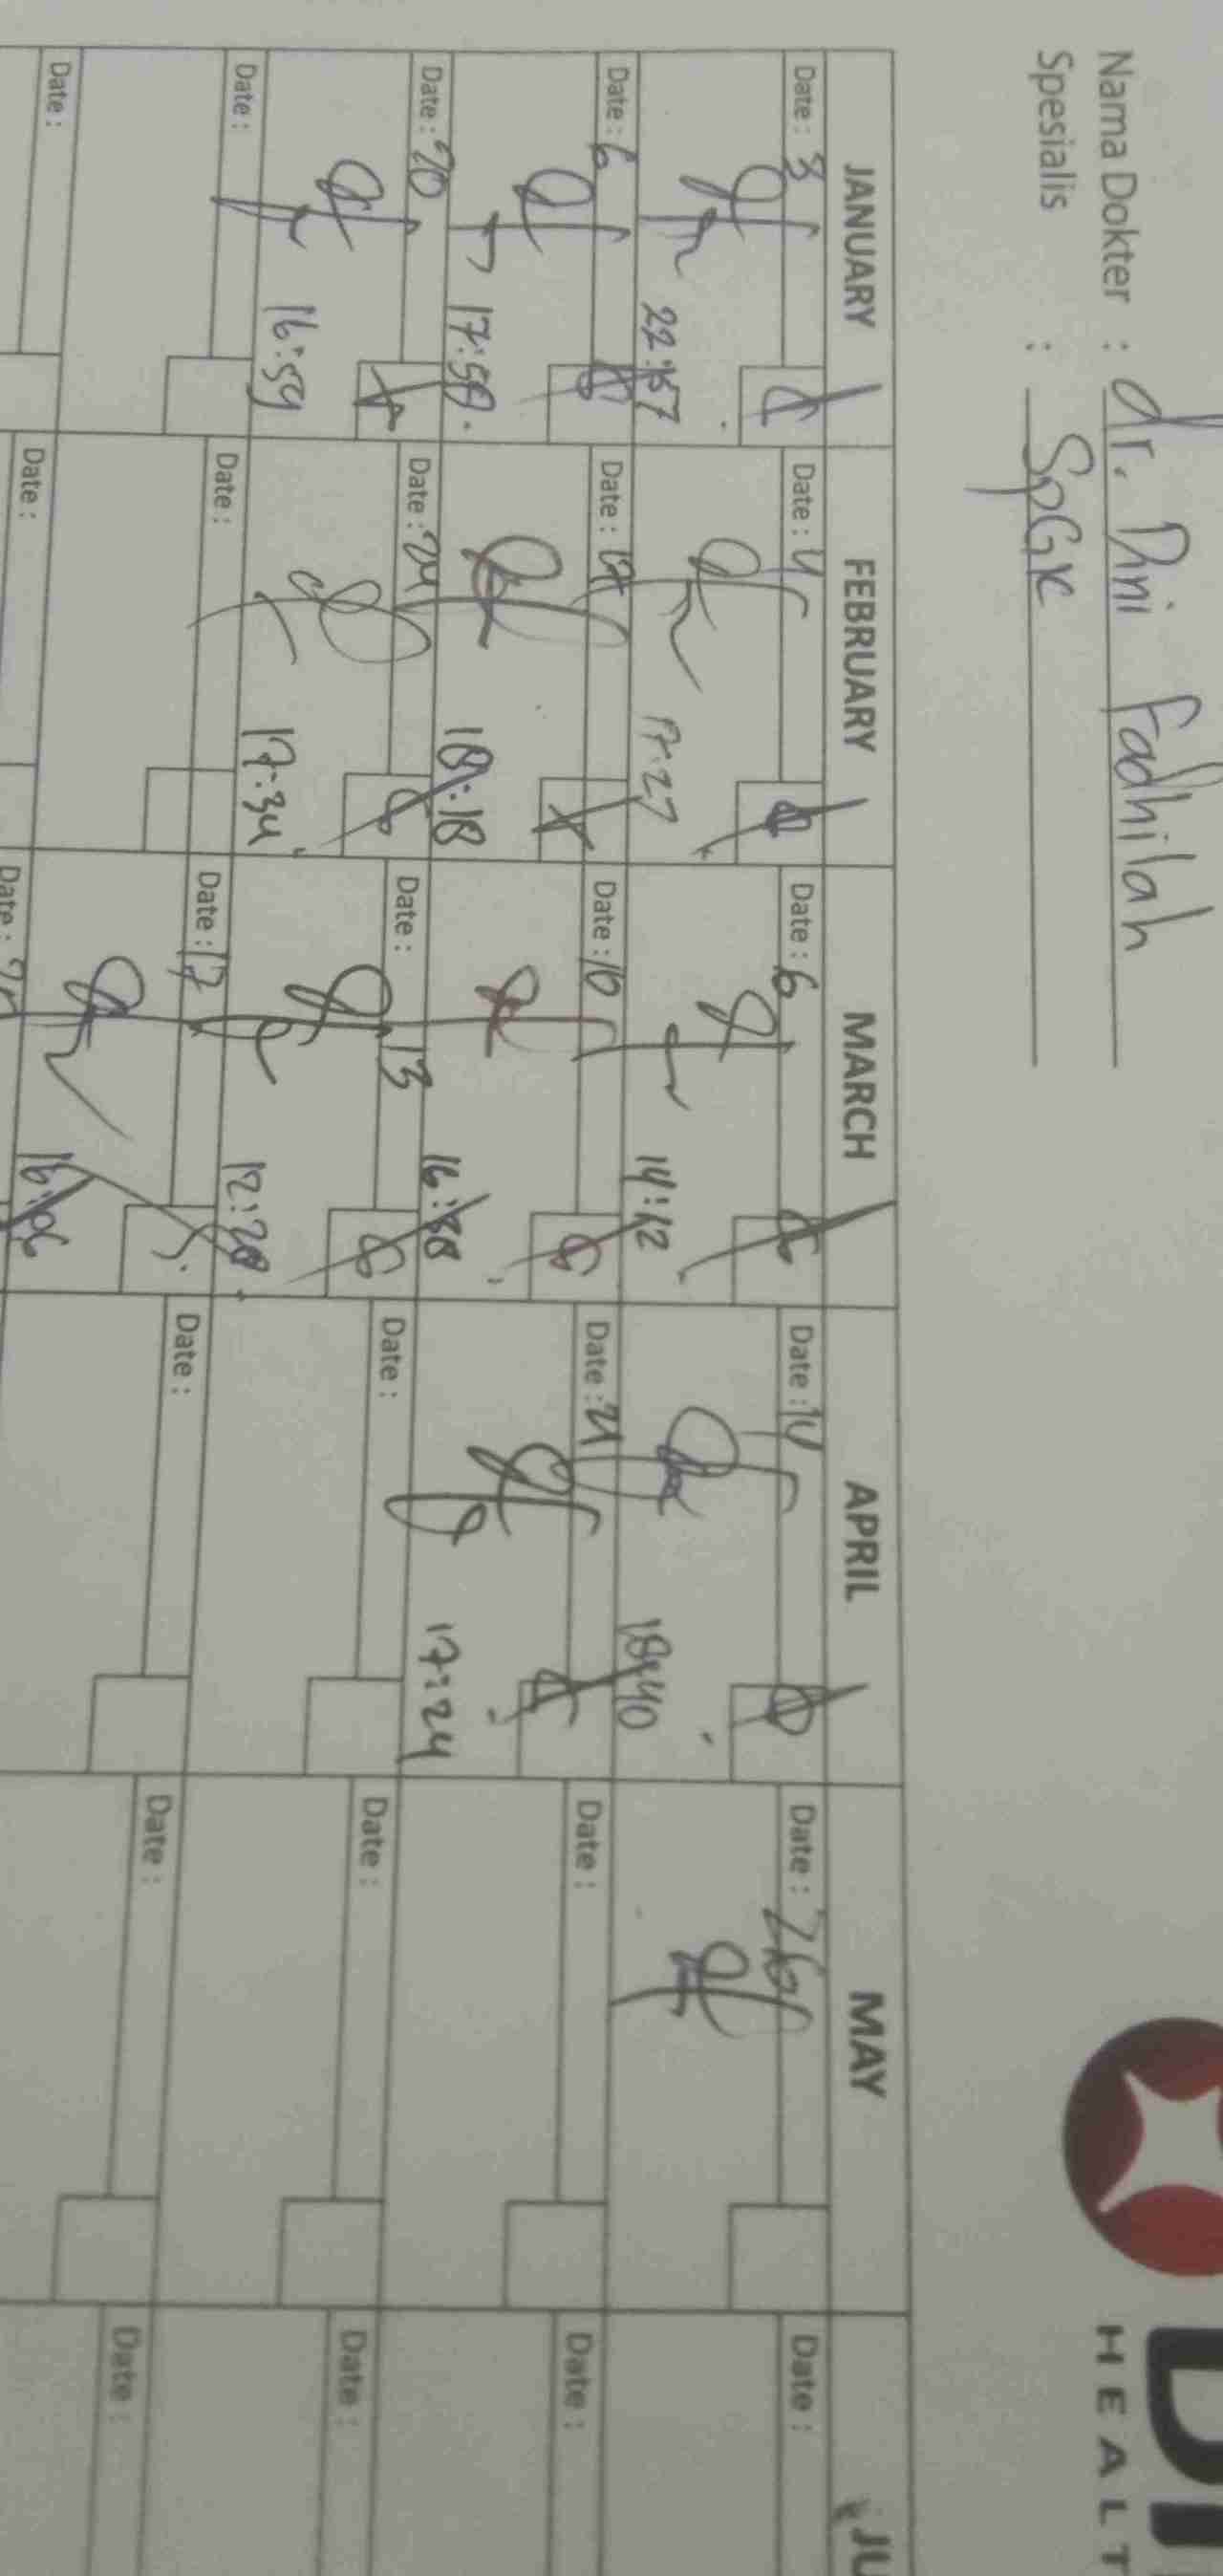 Nama Dokter : dr. Dini Fadhilah
Spesialis : SpGK
HEALT
JANUARY FEBRUARY MARCH APRIL MAY JU
Date : 3 Date : 4 Date : 6 Date : 14 Date : 26 Date :
22:57 17:27 14:12 18:40
Date : 6 Date : 17 Date : 10 Date : 21 Date : Date :
17:50 18:18 16:38 17:24
Date : 20 Date : 24 Date : 13 Date : Date : Date :
16:59 17:34 12:28
Date : Date : Date : 17 Date : Date : Date :
16:06
Date : Date : Date :